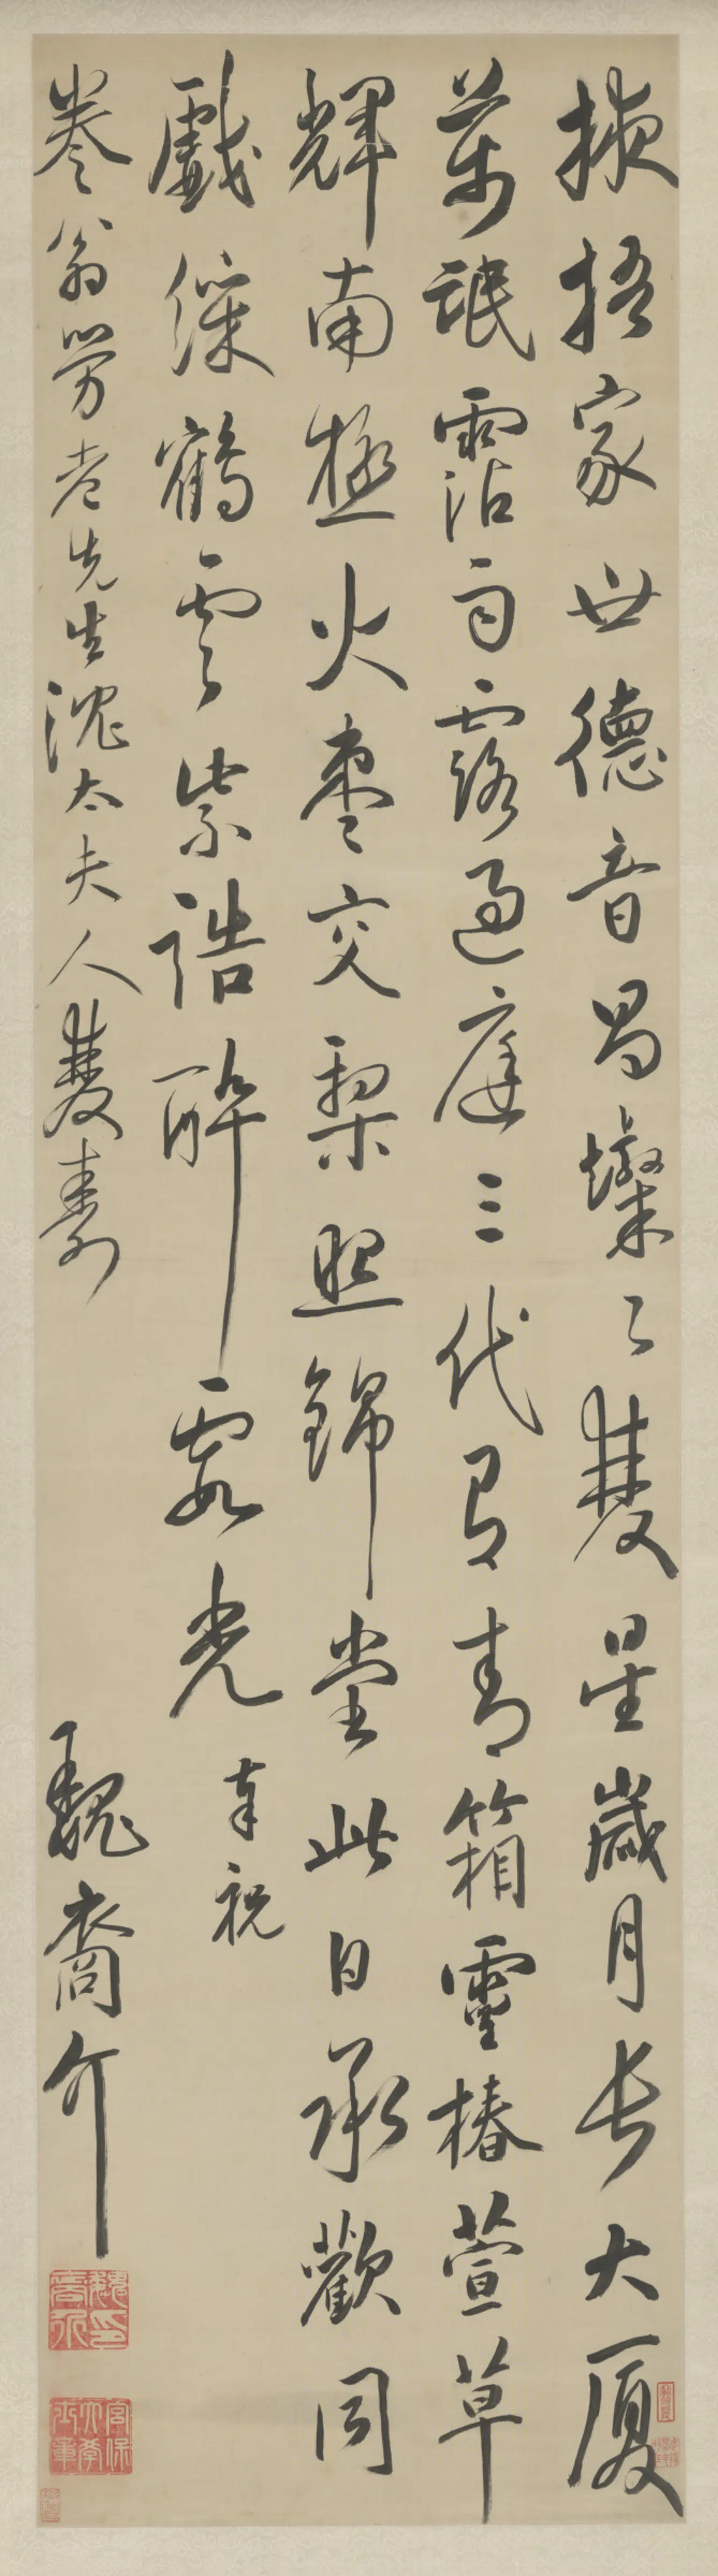 掖梧家世德音昌燦〻雙星歲月長大厦
萬氓霑雨露過庭三代有青箱靈椿萱草
輝南極火棗交棃照錦堂此日承歡同
戲綵鶴雲紫誥醉霞光 奉祝
卷翁勞老先生沈太夫人雙壽 魏裔介